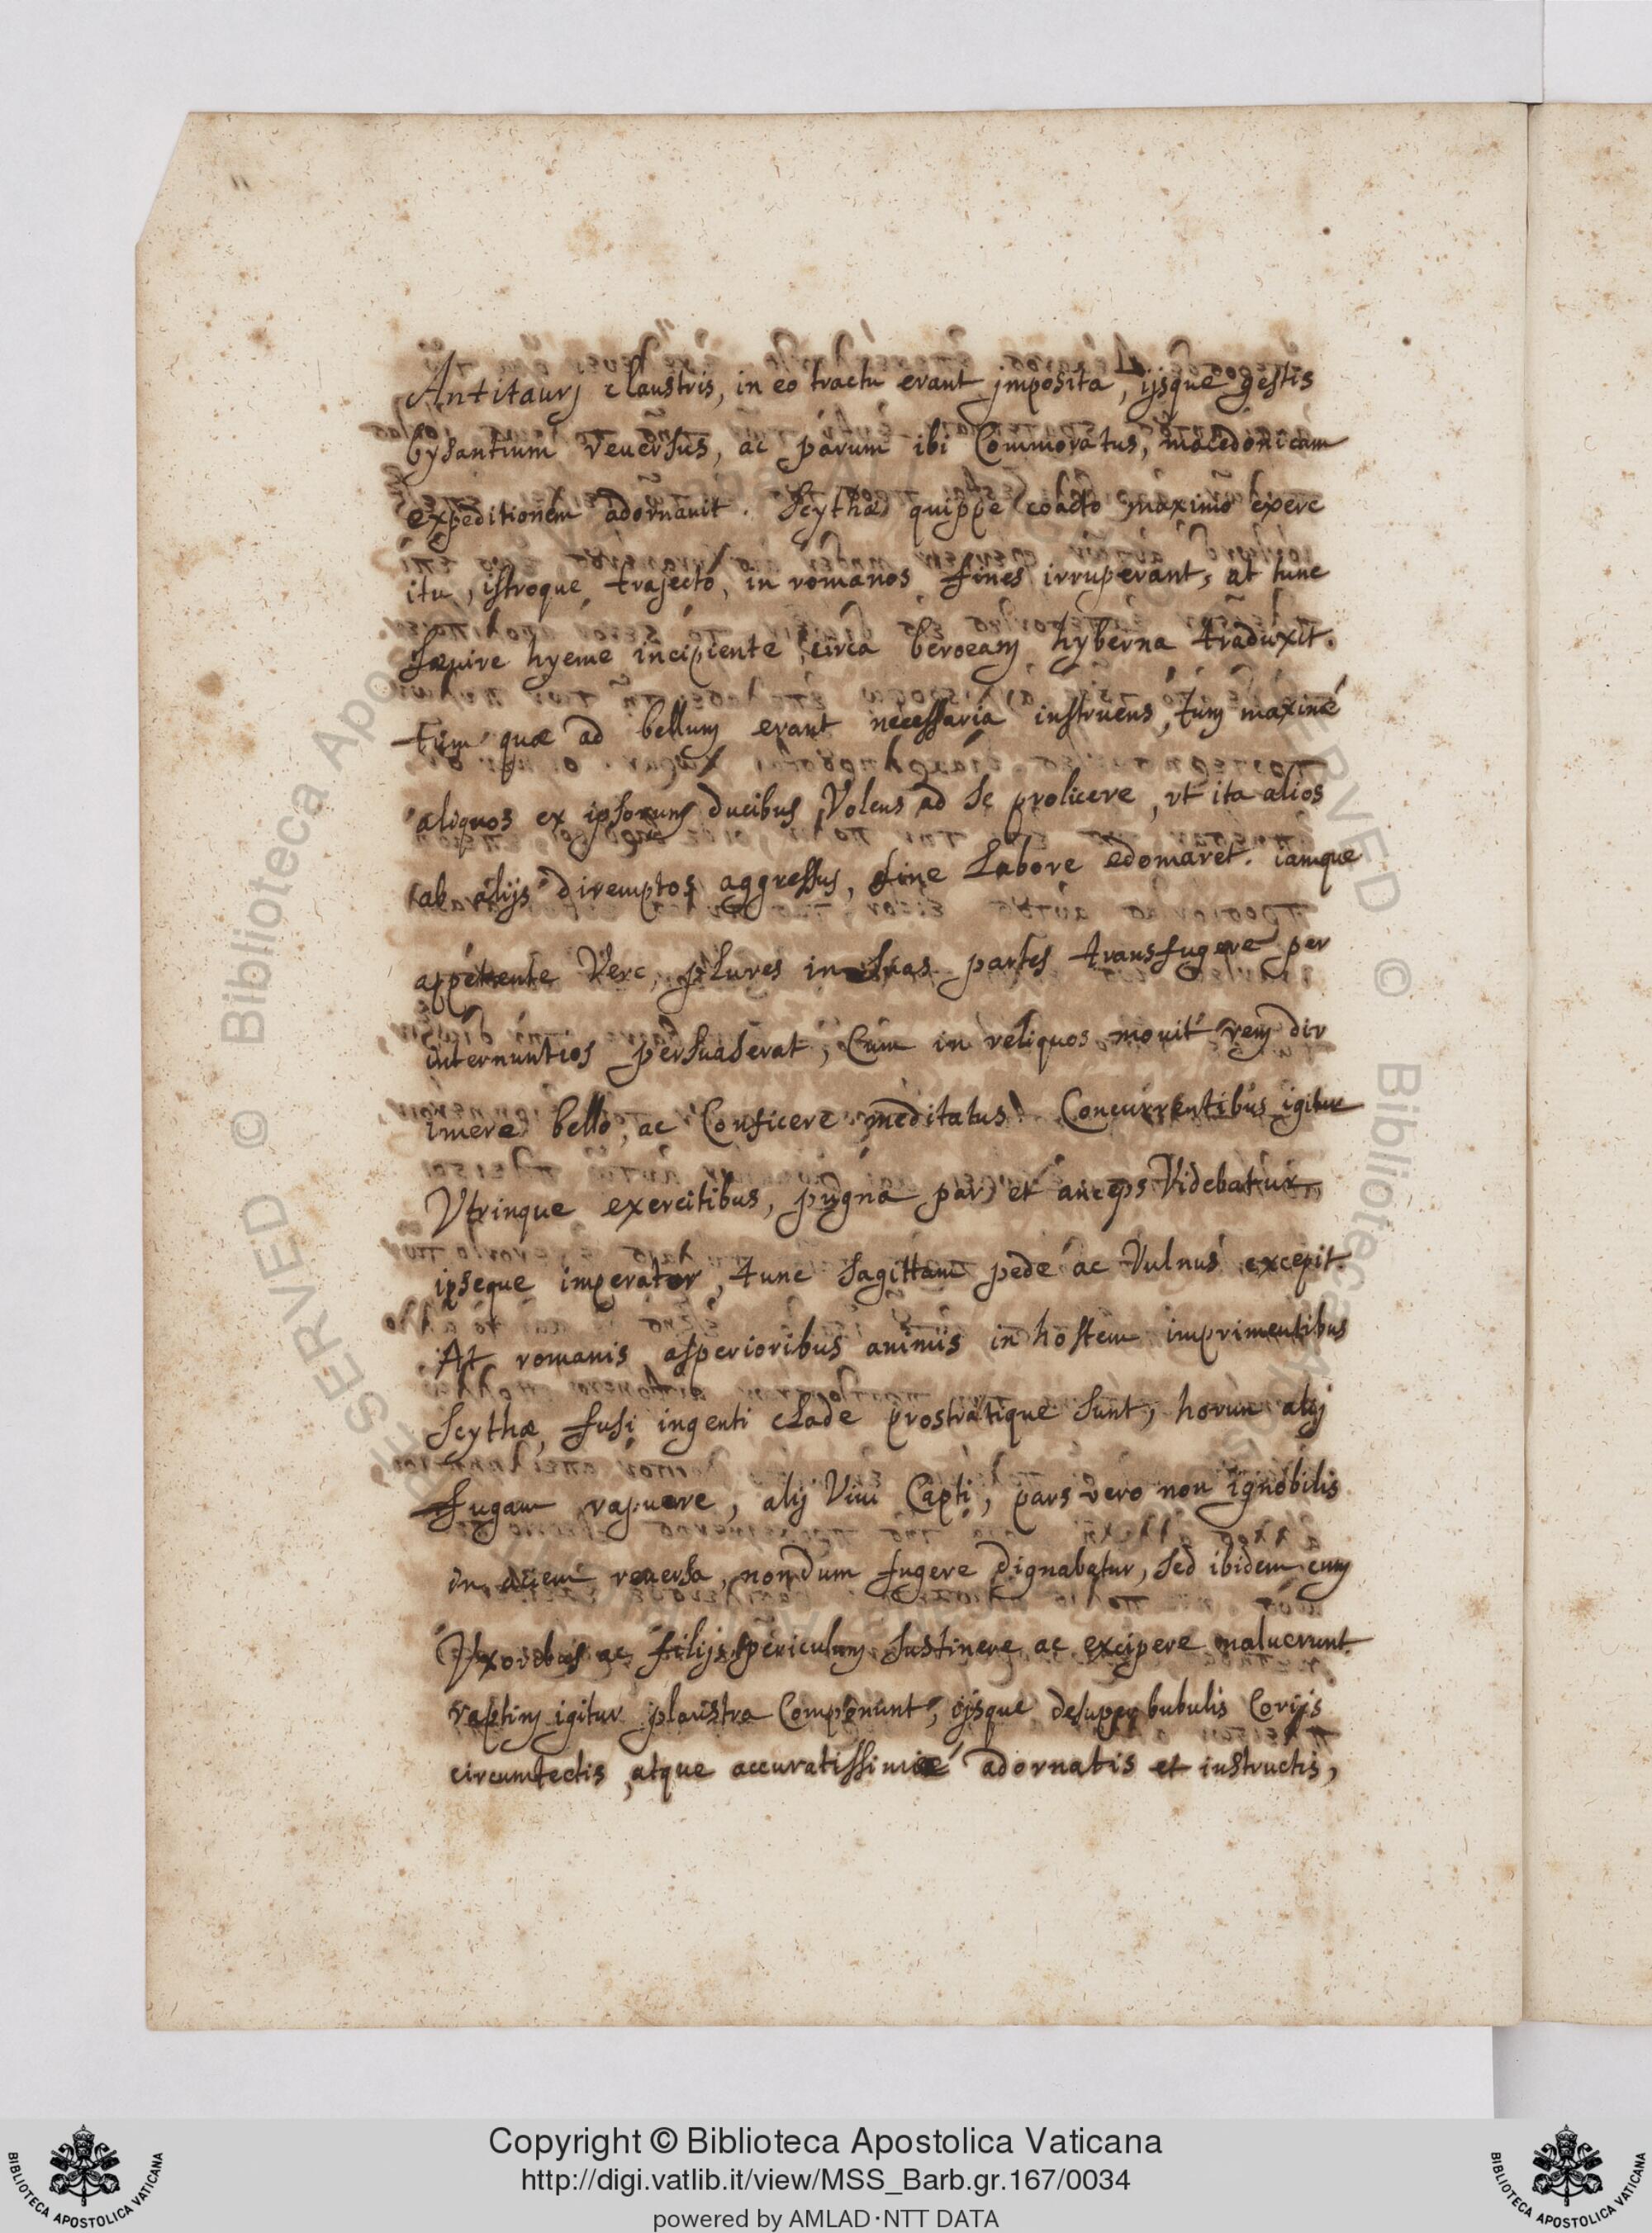 Antitaurj claustris, in eo tractu erant jmposita, ijsque gestis
bysantium reuersus, ac parum ibi Commoratus, macedonicam
expeditionem adornauit. Scythae quippe coacto maximo exerc
itu, istroque trajecto, in romanos fines irruperant, at tunc
saeuire hyeme incipiente circa beroeam hyberna traduxit.
tum quae ad bellum erant necessaria instruens, tum maximé
aliquos ex ipsorum ducibus Volens ad se prolicere, vt ita alios
ab alijs diremptos aggressus, sine Labore edomaret. iamque
appetente Vere, plures in suas partes transfugere per
internuntios persuaserat, Cum in reliquos mouit rem dir
imere bello, ac Conficere meditatus. Concurrentibus igitur
Vtrinque exercitibus, pugna par et anceps Videbatur,
ipseque imperator, tunc sagittam pede ac Vulnus excepit.
At romanis asperioribus animis in hostem imprimentibus
Scythae, fusi ingenti cLade prostratique sunt, horun alij
fugam rapuere, alij Viui Capti, pars vero non ignobilis
in aciem reuersa, nondum fugere dignabatur, sed ibidem cum
Vxoribus ac filijs periculum sustinere ac excipere maluerunt.
raptim igitur plaustra Componunt, ijsque desuper bubulis Corijs
circumtectis, atque accuratissimé adornatis et instructis,
Copyright © Biblioteca Apostolica Vaticana
http://digi.vatlib.it/view/MSS_Barb.gr.167/0034
powered by AMLAD·NTT DATA
BIBLIOTECA APOSTOLICA VATICANA
BIBLIOTECA APOSTOLICA VATICANA